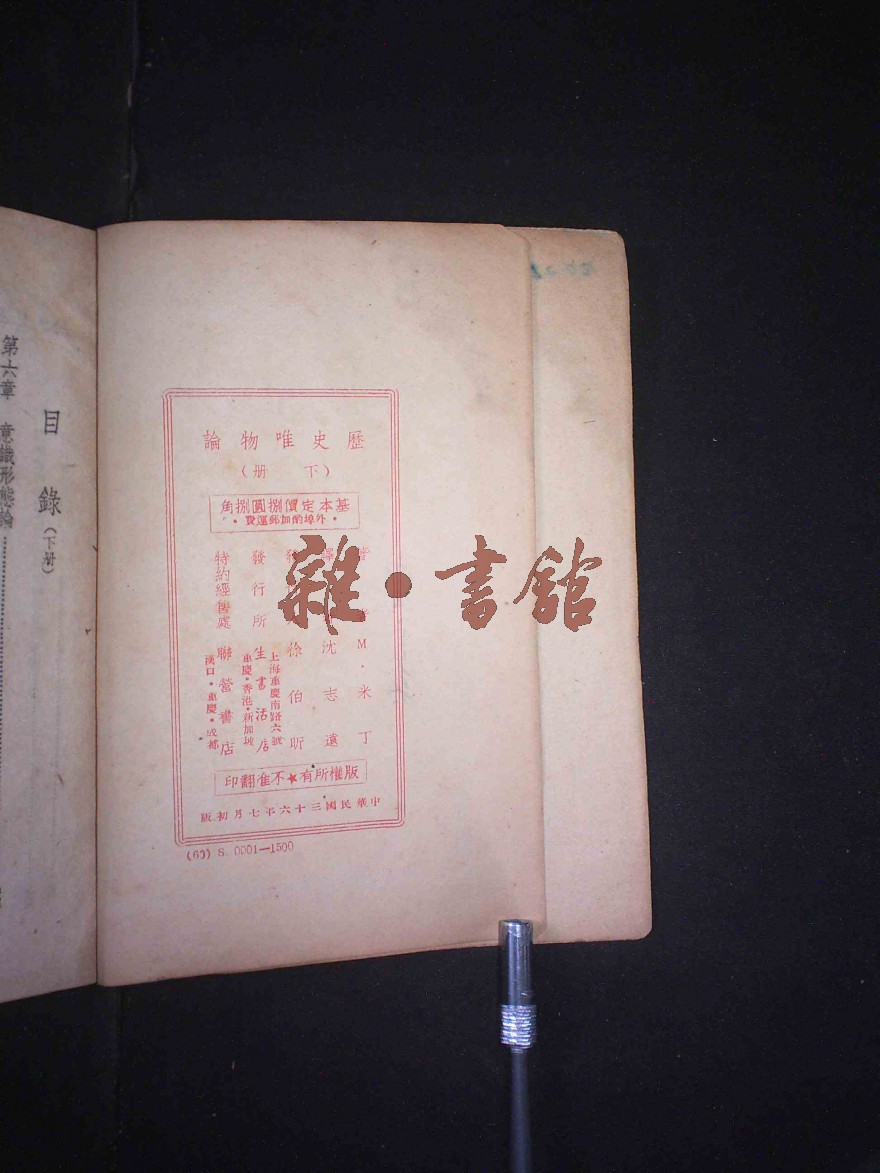 歷史唯物論
（下册）
基本定價捌圓捌角
•外埠酌加郵運費•
M•米丁
沈志遠
徐伯昕
發行所
生活書店
上海重慶南路六號
重慶•香港•新加坡
特約經售處
聯營書店
漢口•重慶•成都
版權所有★不准翻印
中華民國三十六年七月初版
(60) S. 0001—1500
目錄（下册）
第六章 意識形態論
雜•書館